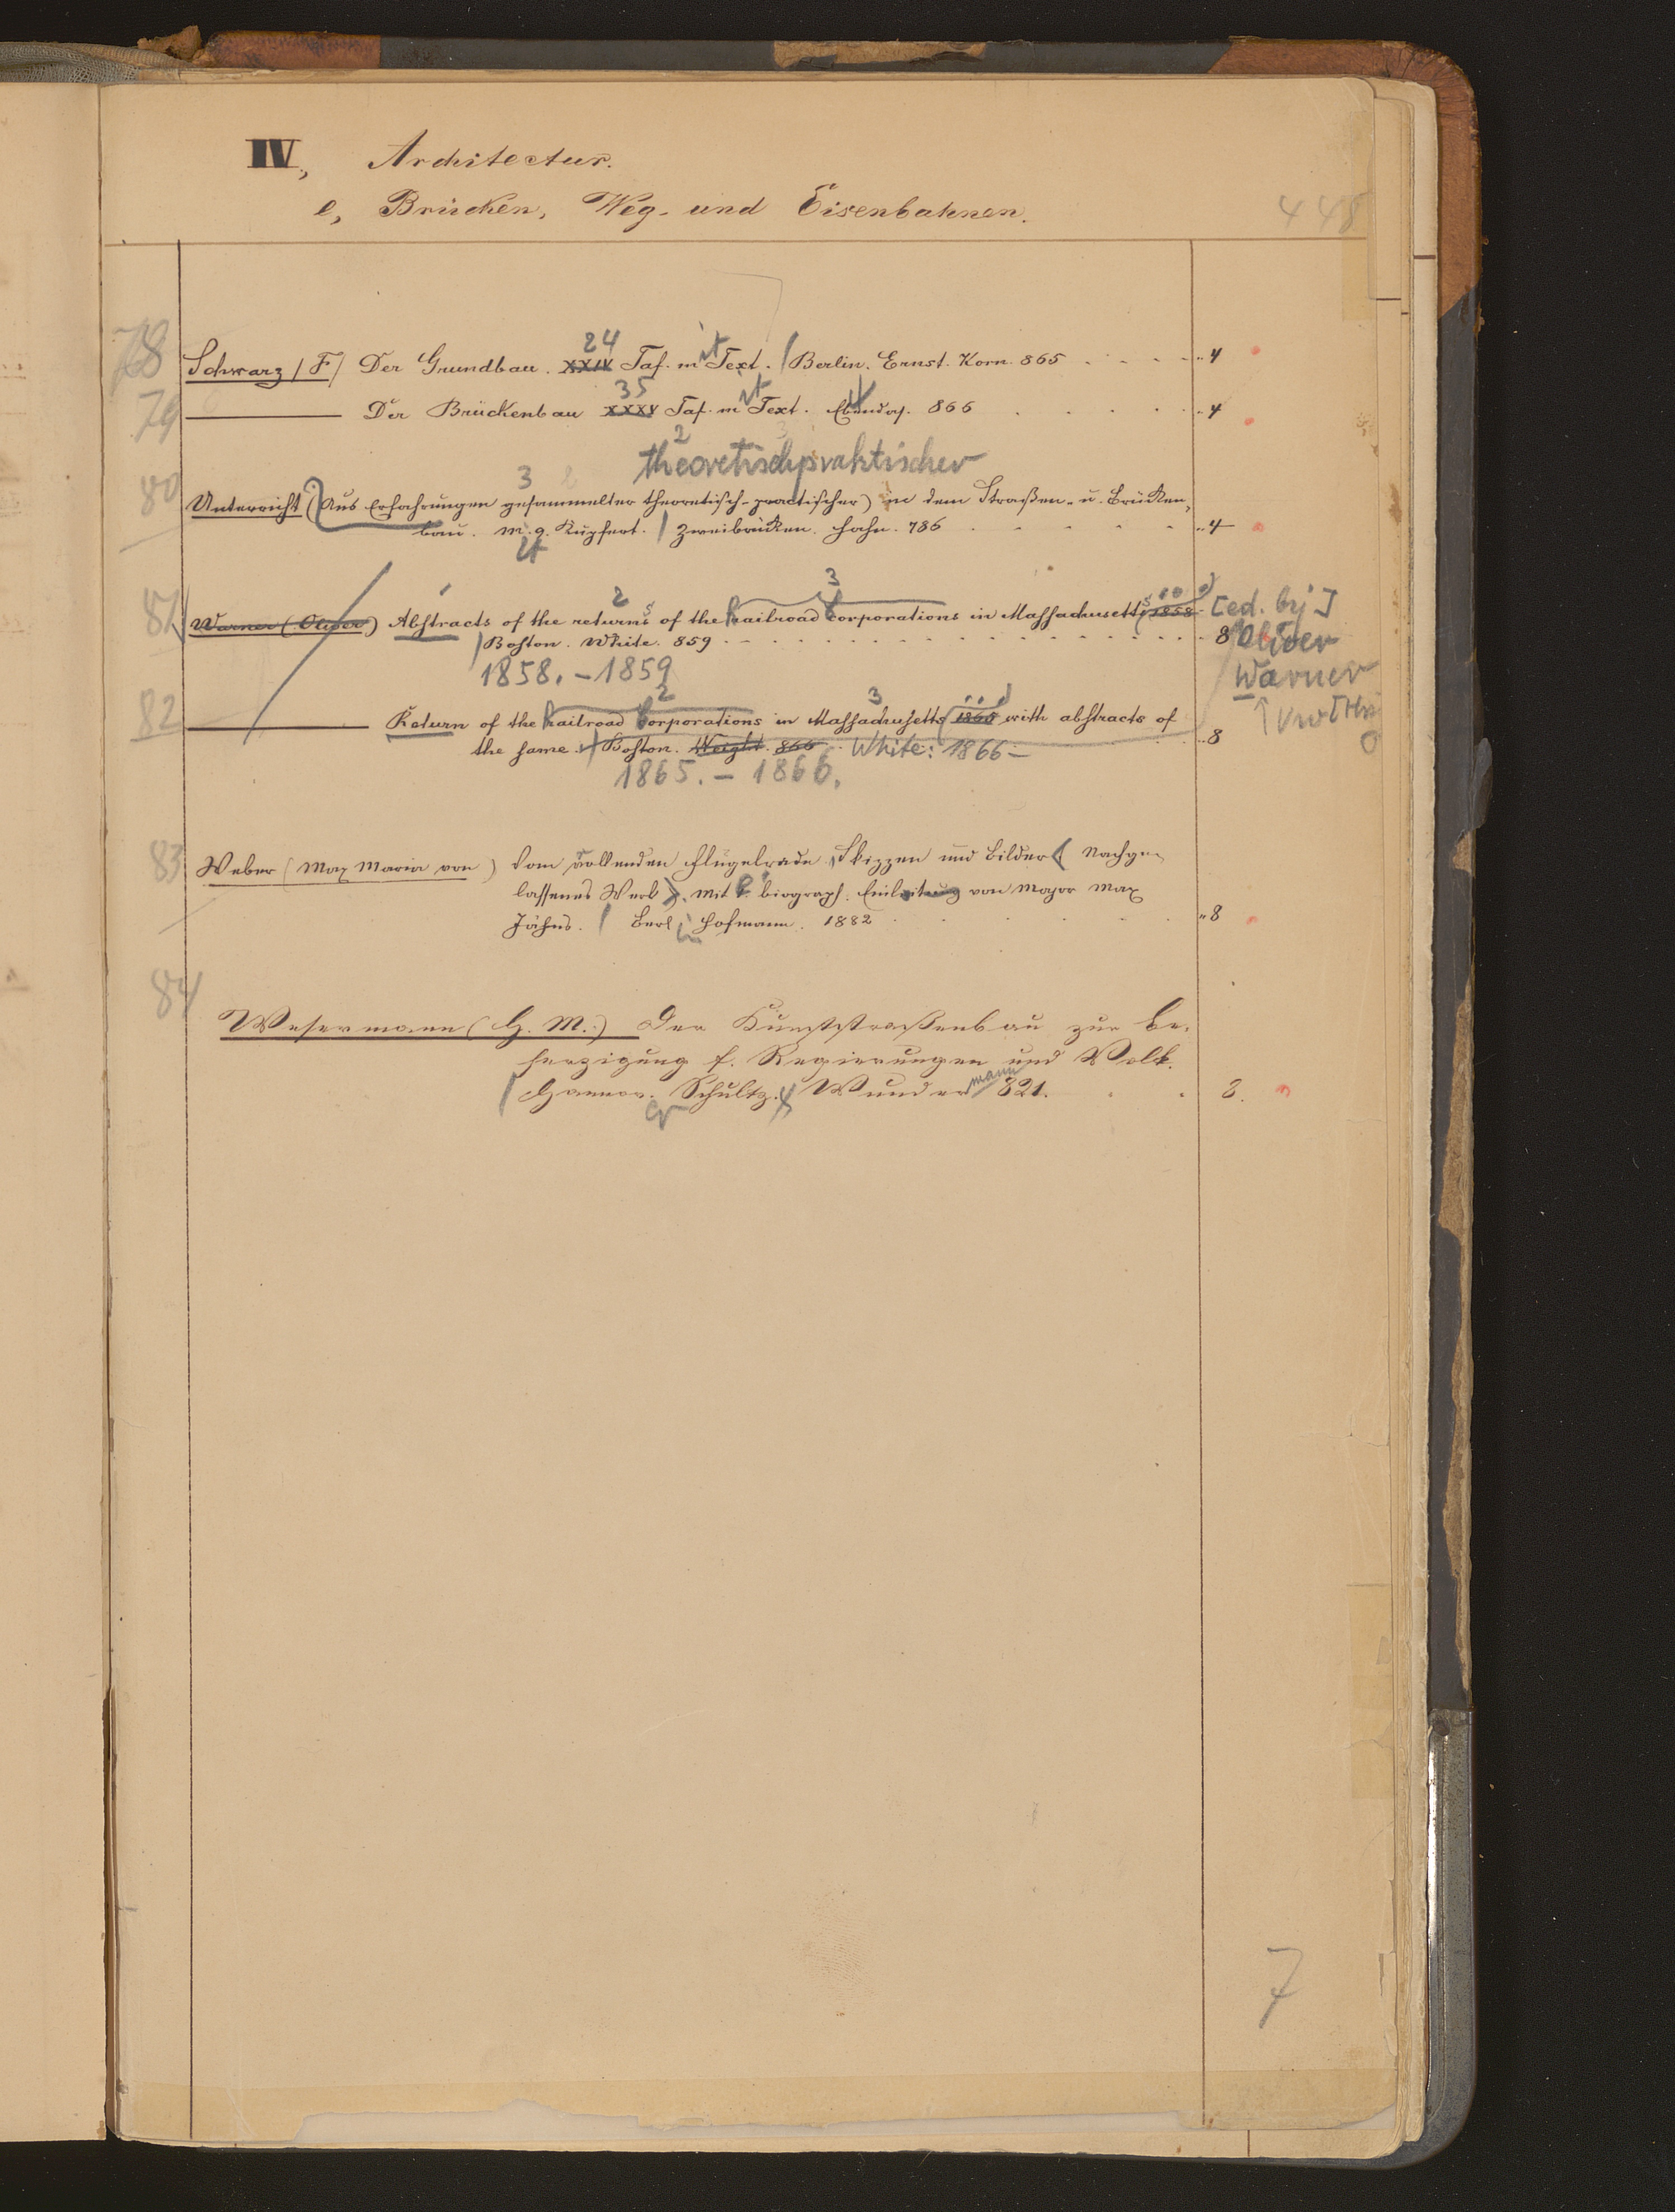 IV, Architectur.
e, Brücken, Weg- und Eisenbahnen.
448
24
78 Schwarz (F) Der Grundbau. XXIV Taf. mit Text. Berlin. Ernst. Korn. 865 „4
35
79 Der Brückenbau XXXV Taf. mit Text. Ebendas. 866 „4
2
theoretischpraktischer
3
80 Unterricht (Aus Erfahrungen gesammelter theoretisch-practischer) in dem Straßen- u. Brücken-
bau. M. 9. Kupfert. Zweibrücken. Hahn. 786 „4
2 3
81 Warner (Oliver) Abstracts of the returns of the railroad corporations in Massachusetts 1858 [ed. by]
Boston. White. 859 8 Oliver
1858. – 1859 Warner
2 3
82 Return of the railroad corporations in Massachusetts 1865 with abstracts of
the same. Boston. Weight. 866 White: 1866 – „8
1865. – 1866.
83 Weber (Max Maria von) Vom rollenden Flügelrade. Skizzen und Bilder. Nachge-
lassenes Werk. Mit e. biograph. Einleitung von Major Max
Jähns. Berlin Hofmann. 1882 „8
84 Wesermann (H. M.) Der Kunststraßenbau zur Be-
herzigung f. Regierungen und Volk.
mann
Hannov. Schultz. Wunder 821. 8.
7